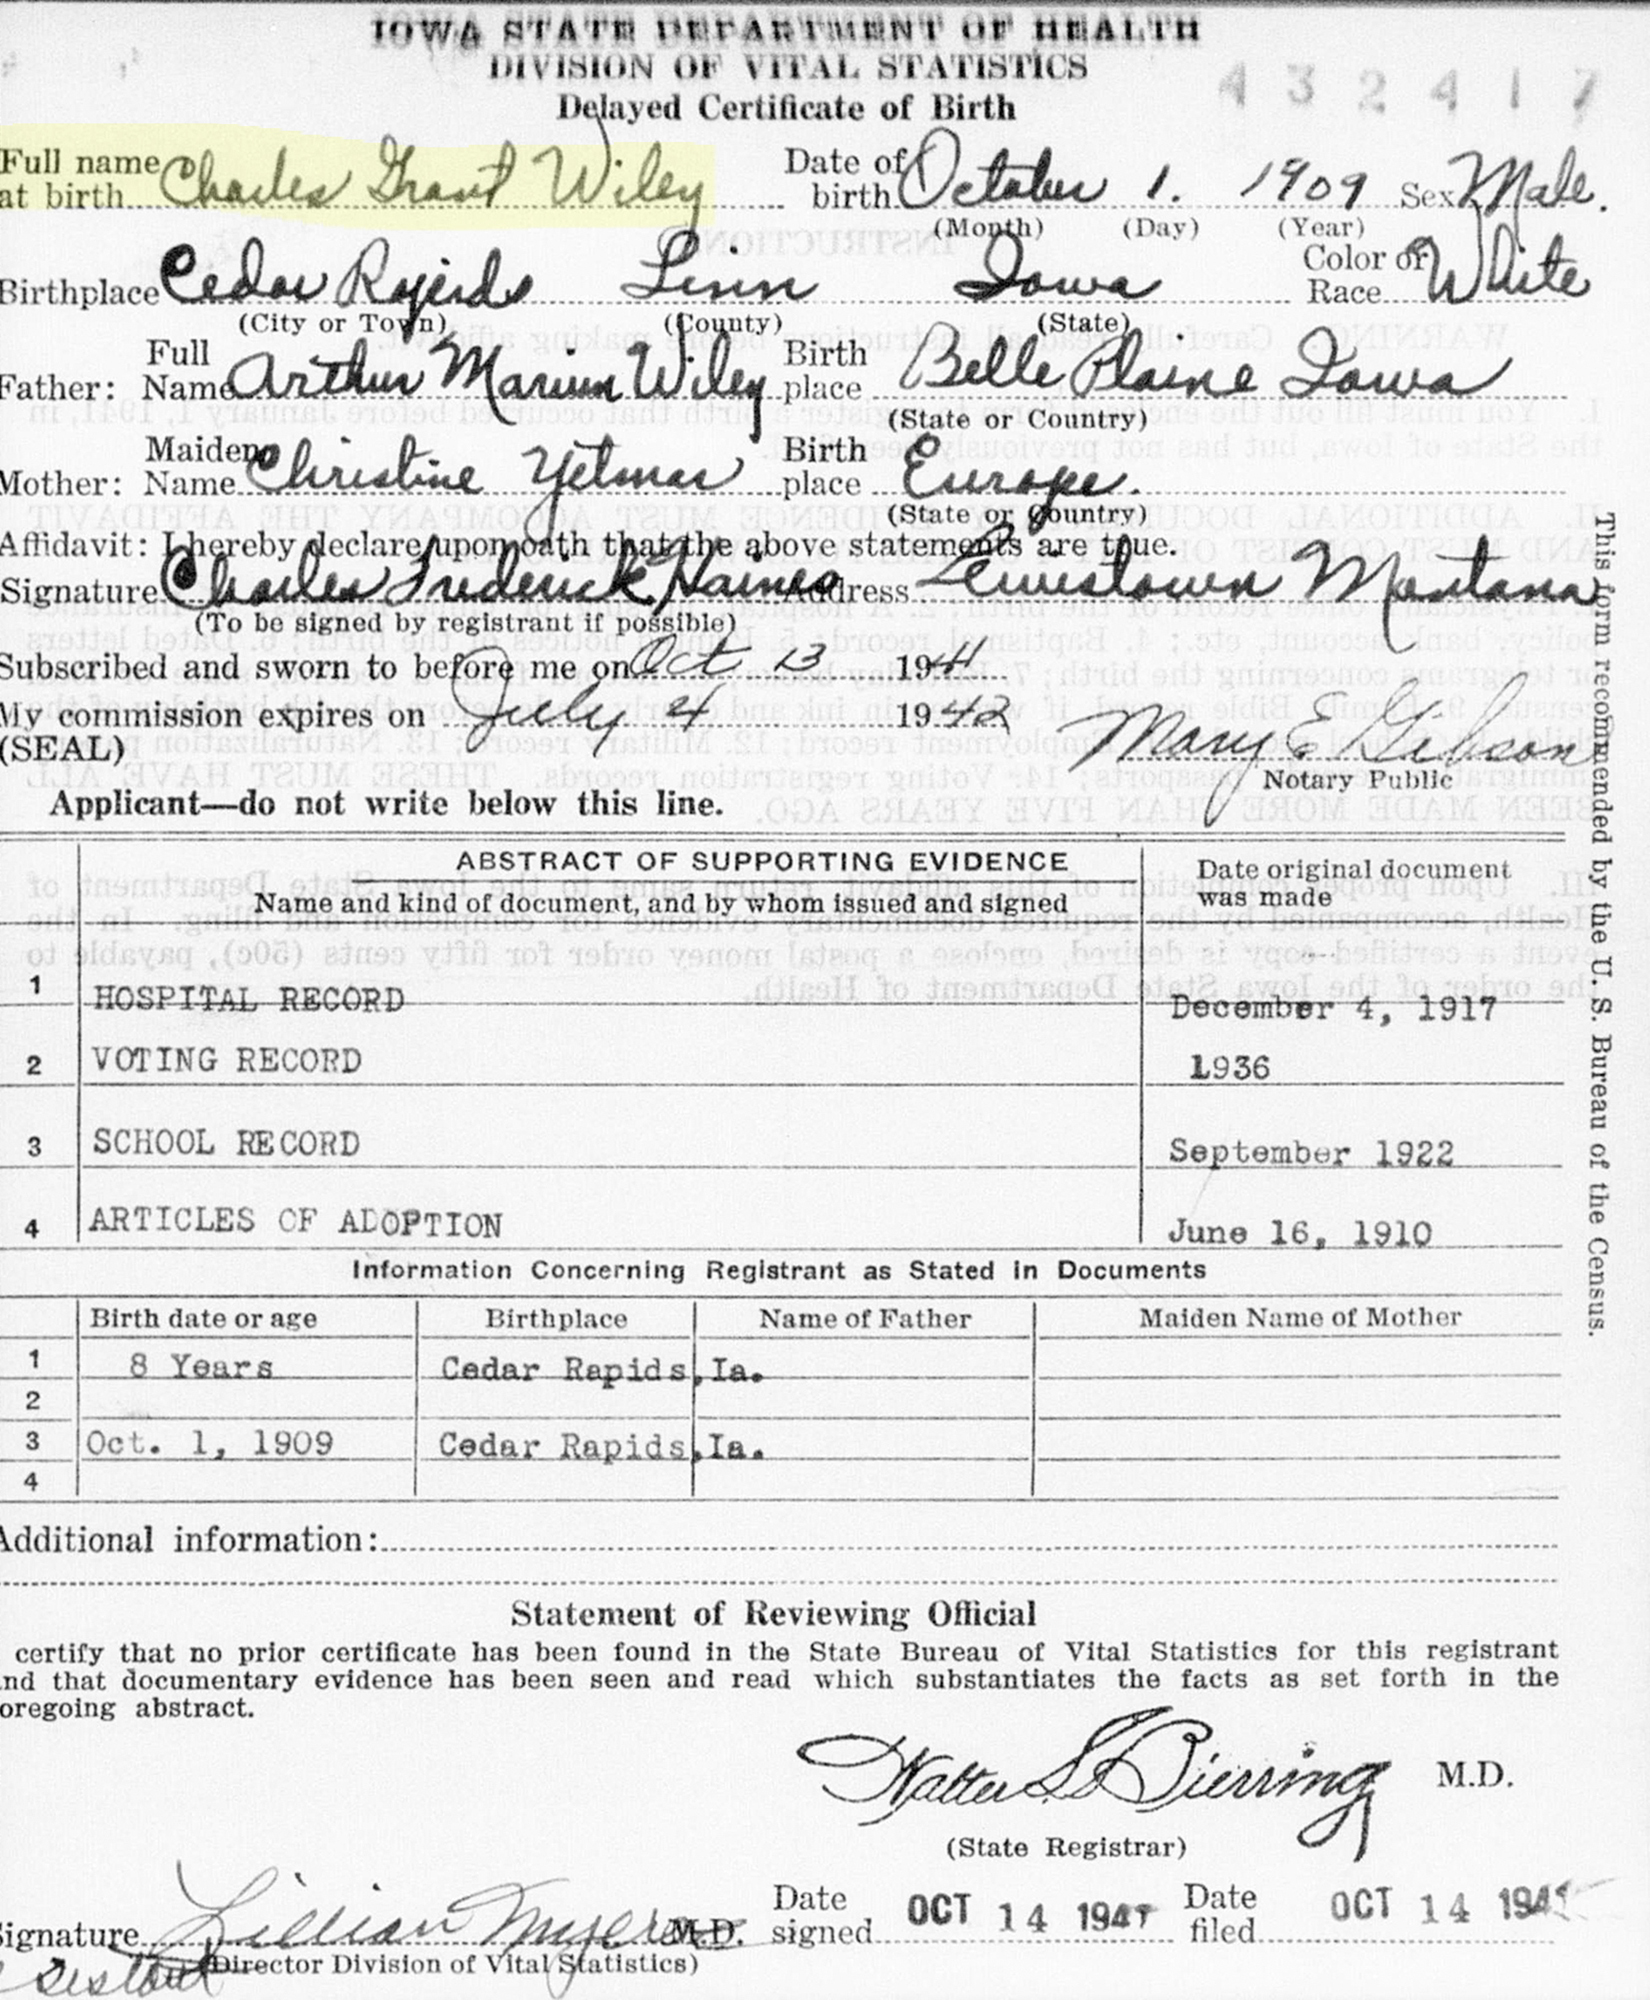 IOWA STATE DEPARTMENT OF HEALTH
DIVISION OF VITAL STATISTICS
Delayed Certificate of Birth
432417
Full name at birth Charles Grant Wiley Date of birth October 1. 1909 Sex Male.
(Month) (Day) (Year)
Birthplace Cedar Rapids Linn Iowa Color or Race White
(City or Town) (County) (State)
Father: Full Name Arthur Marion Wiley Birth place Belle Plaine Iowa
(State or Country)
Mother: Maiden Name Christine Yetmar Birth place Europe.
(State or Country)
Affidavit: I hereby declare upon oath that the above statements are true.
Signature Charles Frederick Haines Address Lewistown Montana
(To be signed by registrant if possible)
Subscribed and sworn to before me on Oct. 13 1941
My commission expires on July 4 1942 Mary E Gibson
(SEAL) Notary Public
Applicant—do not write below this line.
ABSTRACT OF SUPPORTING EVIDENCE
Name and kind of document, and by whom issued and signed Date original document was made
1 HOSPITAL RECORD December 4, 1917
2 VOTING RECORD 1936
3 SCHOOL RECORD September 1922
4 ARTICLES OF ADOPTION June 16, 1910
Information Concerning Registrant as Stated in Documents
Birth date or age Birthplace Name of Father Maiden Name of Mother
1 8 Years Cedar Rapids, Ia.
2
3 Oct. 1, 1909 Cedar Rapids, Ia.
4
Additional information:
Statement of Reviewing Official
certify that no prior certificate has been found in the State Bureau of Vital Statistics for this registrant
nd that documentary evidence has been seen and read which substantiates the facts as set forth in the
oregoing abstract.
Walter L. Bierring M.D.
(State Registrar)
Signature Lillian Myers M.D. Date signed OCT 14 1941 Date filed OCT 14 1941
(Director Division of Vital Statistics)
This form recommended by the U. S. Bureau of the Census.